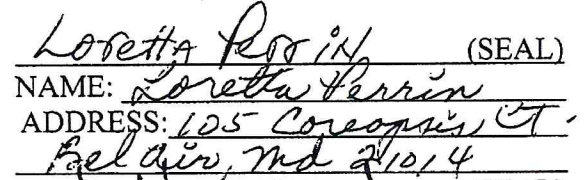 Loretta Perrin (SEAL)
NAME: Loretta Perrin
ADDRESS: 105 Coreopsis Ct.
Bel Air, Md 21014